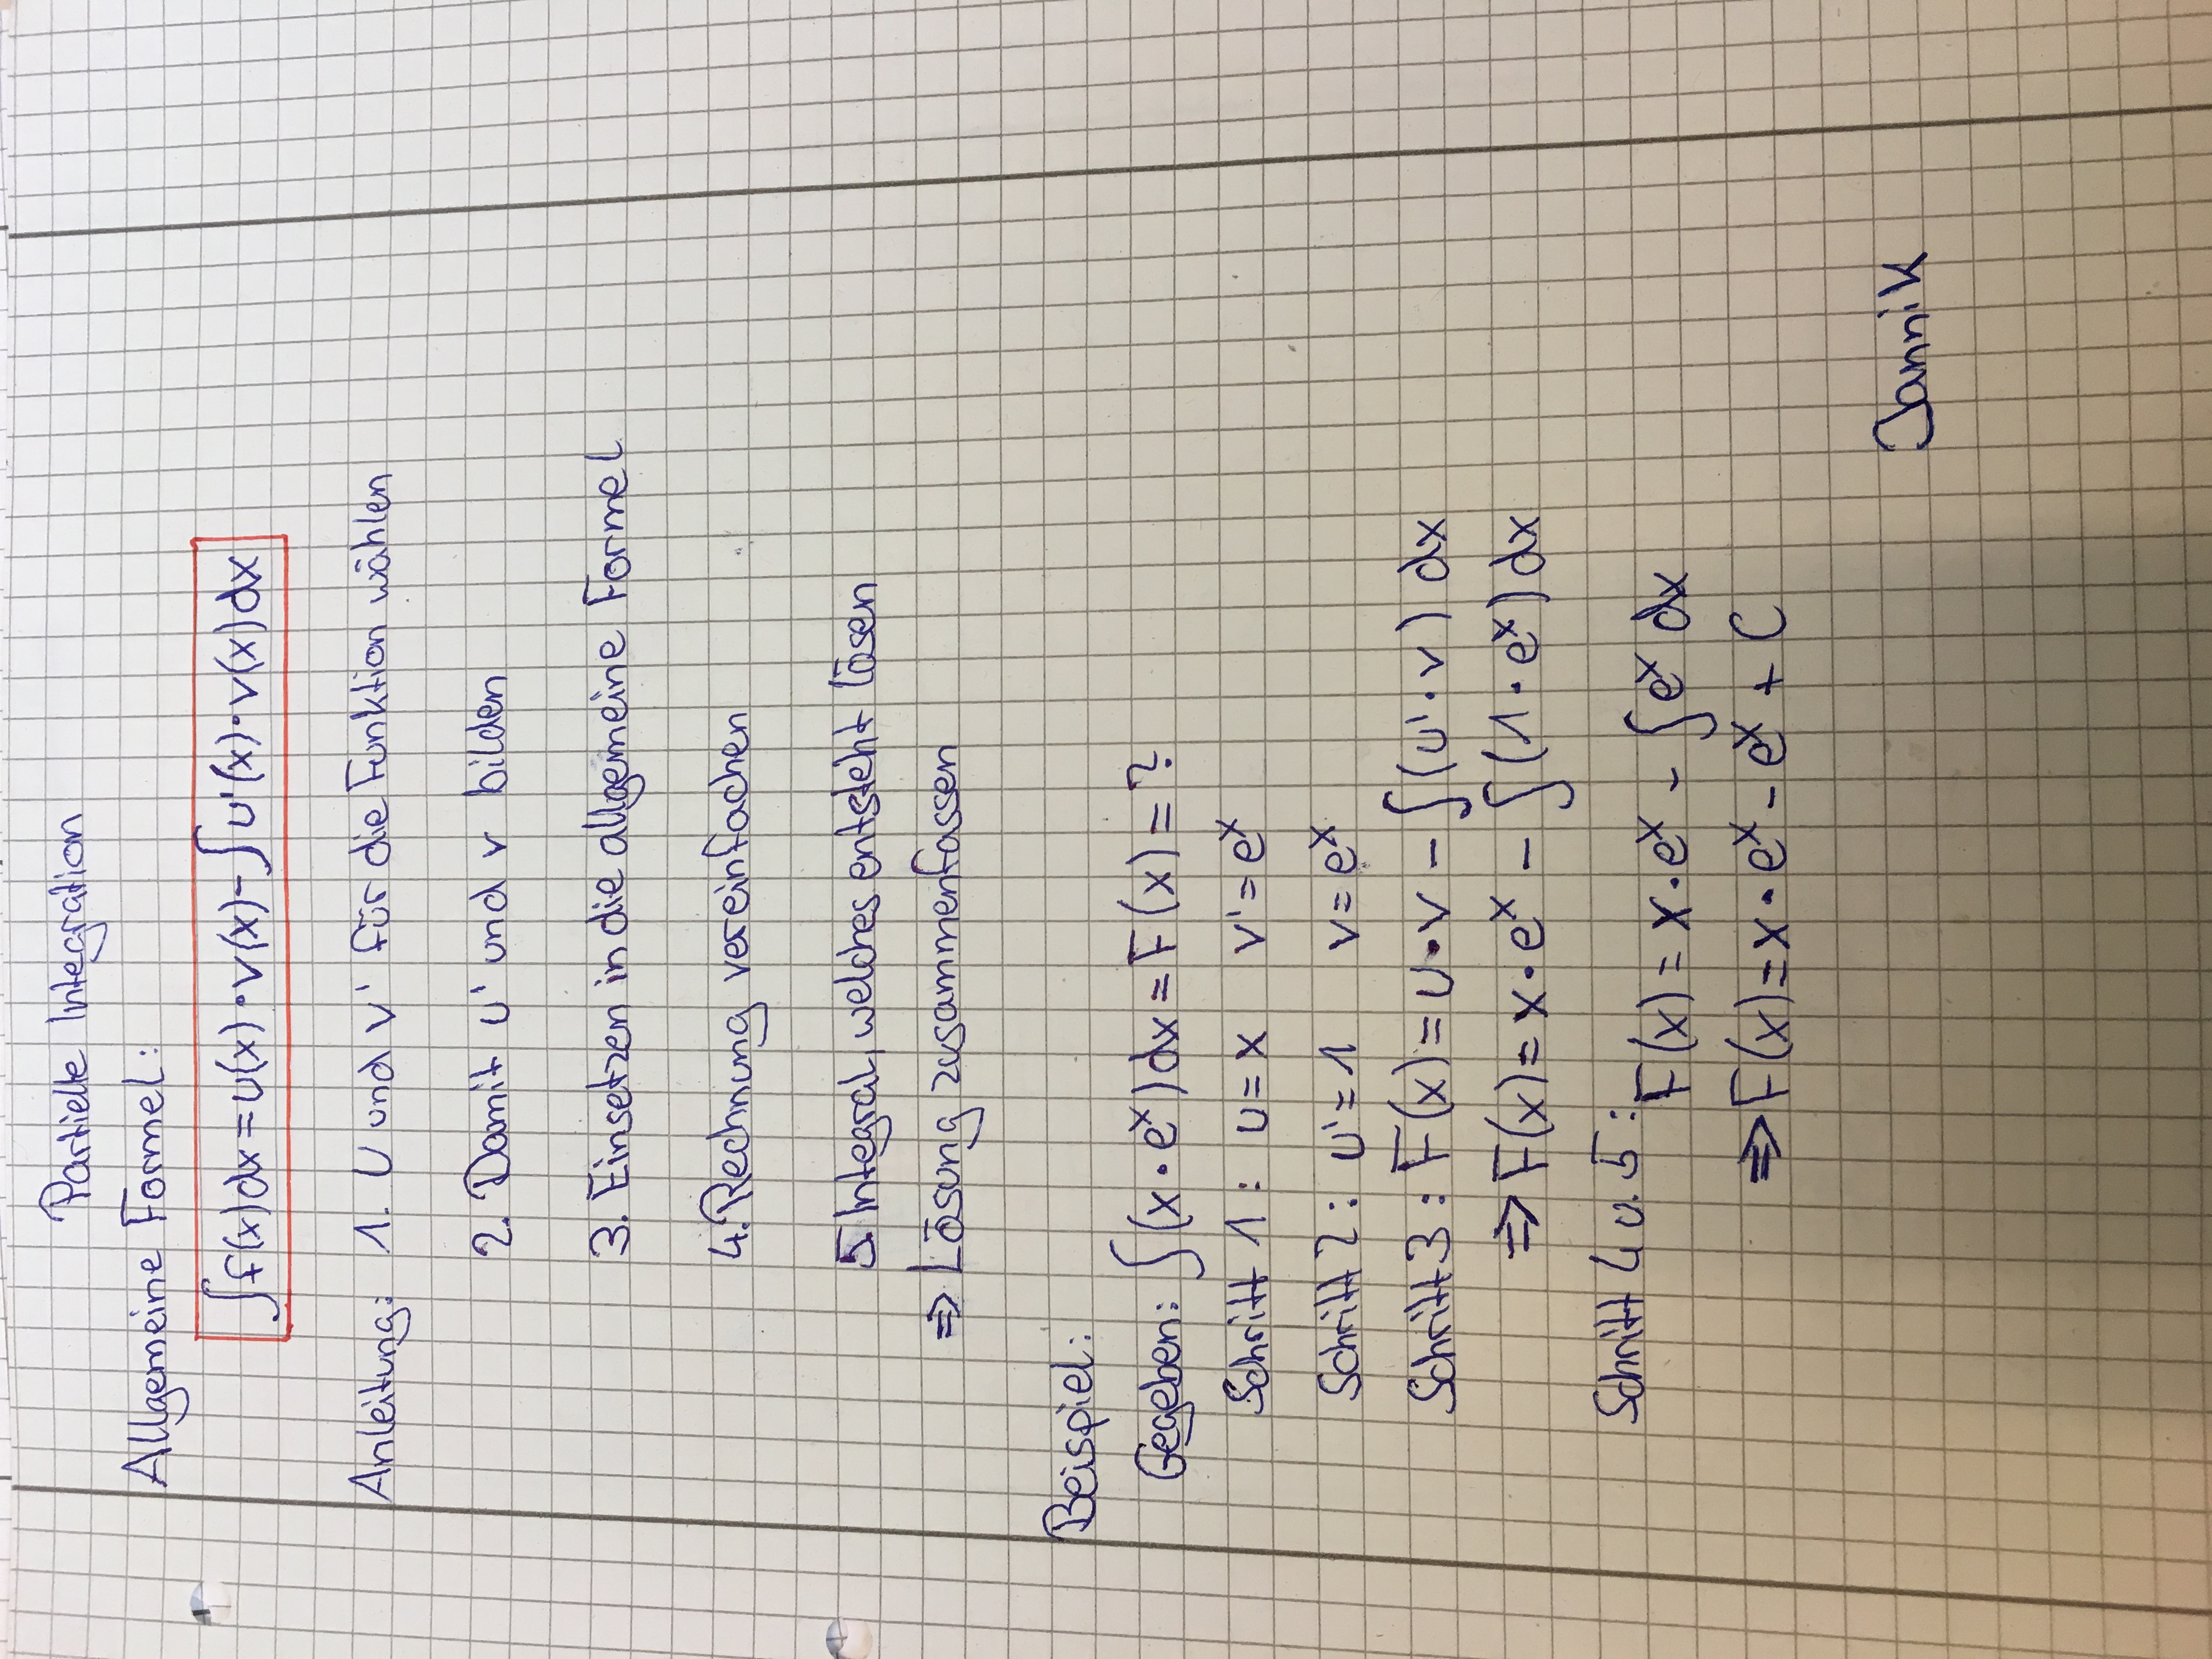 Partielle Integration
Allgemeine Formel:
∫f(x)dx = u(x)·v(x) - ∫u'(x)·v(x)dx
Anleitung: 1. U und v' für die Funktion wählen
2. Damit u' und v bilden
3. Einsetzen in die allgemeine Formel
4. Rechnung vereinfachen
5. Integral, welches entsteht lösen
⇒ Lösung zusammenfassen
Beispiel:
Gegeben: ∫(x·eˣ)dx = F(x) = ?
Schritt 1: u = x v' = eˣ
Schritt 2: u' = 1 v = eˣ
Schritt 3: F(x) = u·v - ∫(u'·v) dx
⇒ F(x) = x·eˣ - ∫(1·eˣ) dx
Schritt 4 u. 5: F(x) = x·eˣ - ∫eˣ dx
⇒ F(x) = x·eˣ - eˣ + C
Jannik